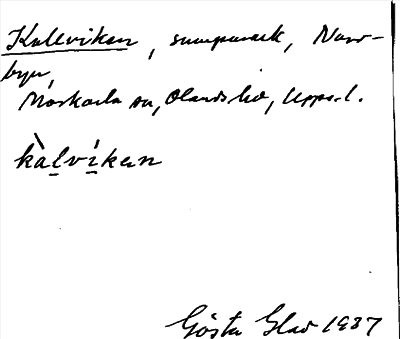 Kallviken, sumpmark, Norr-
byn,
Morkarla sn, Olands hd, Uppl.
kàlvíkan
Gösta Glad 1937